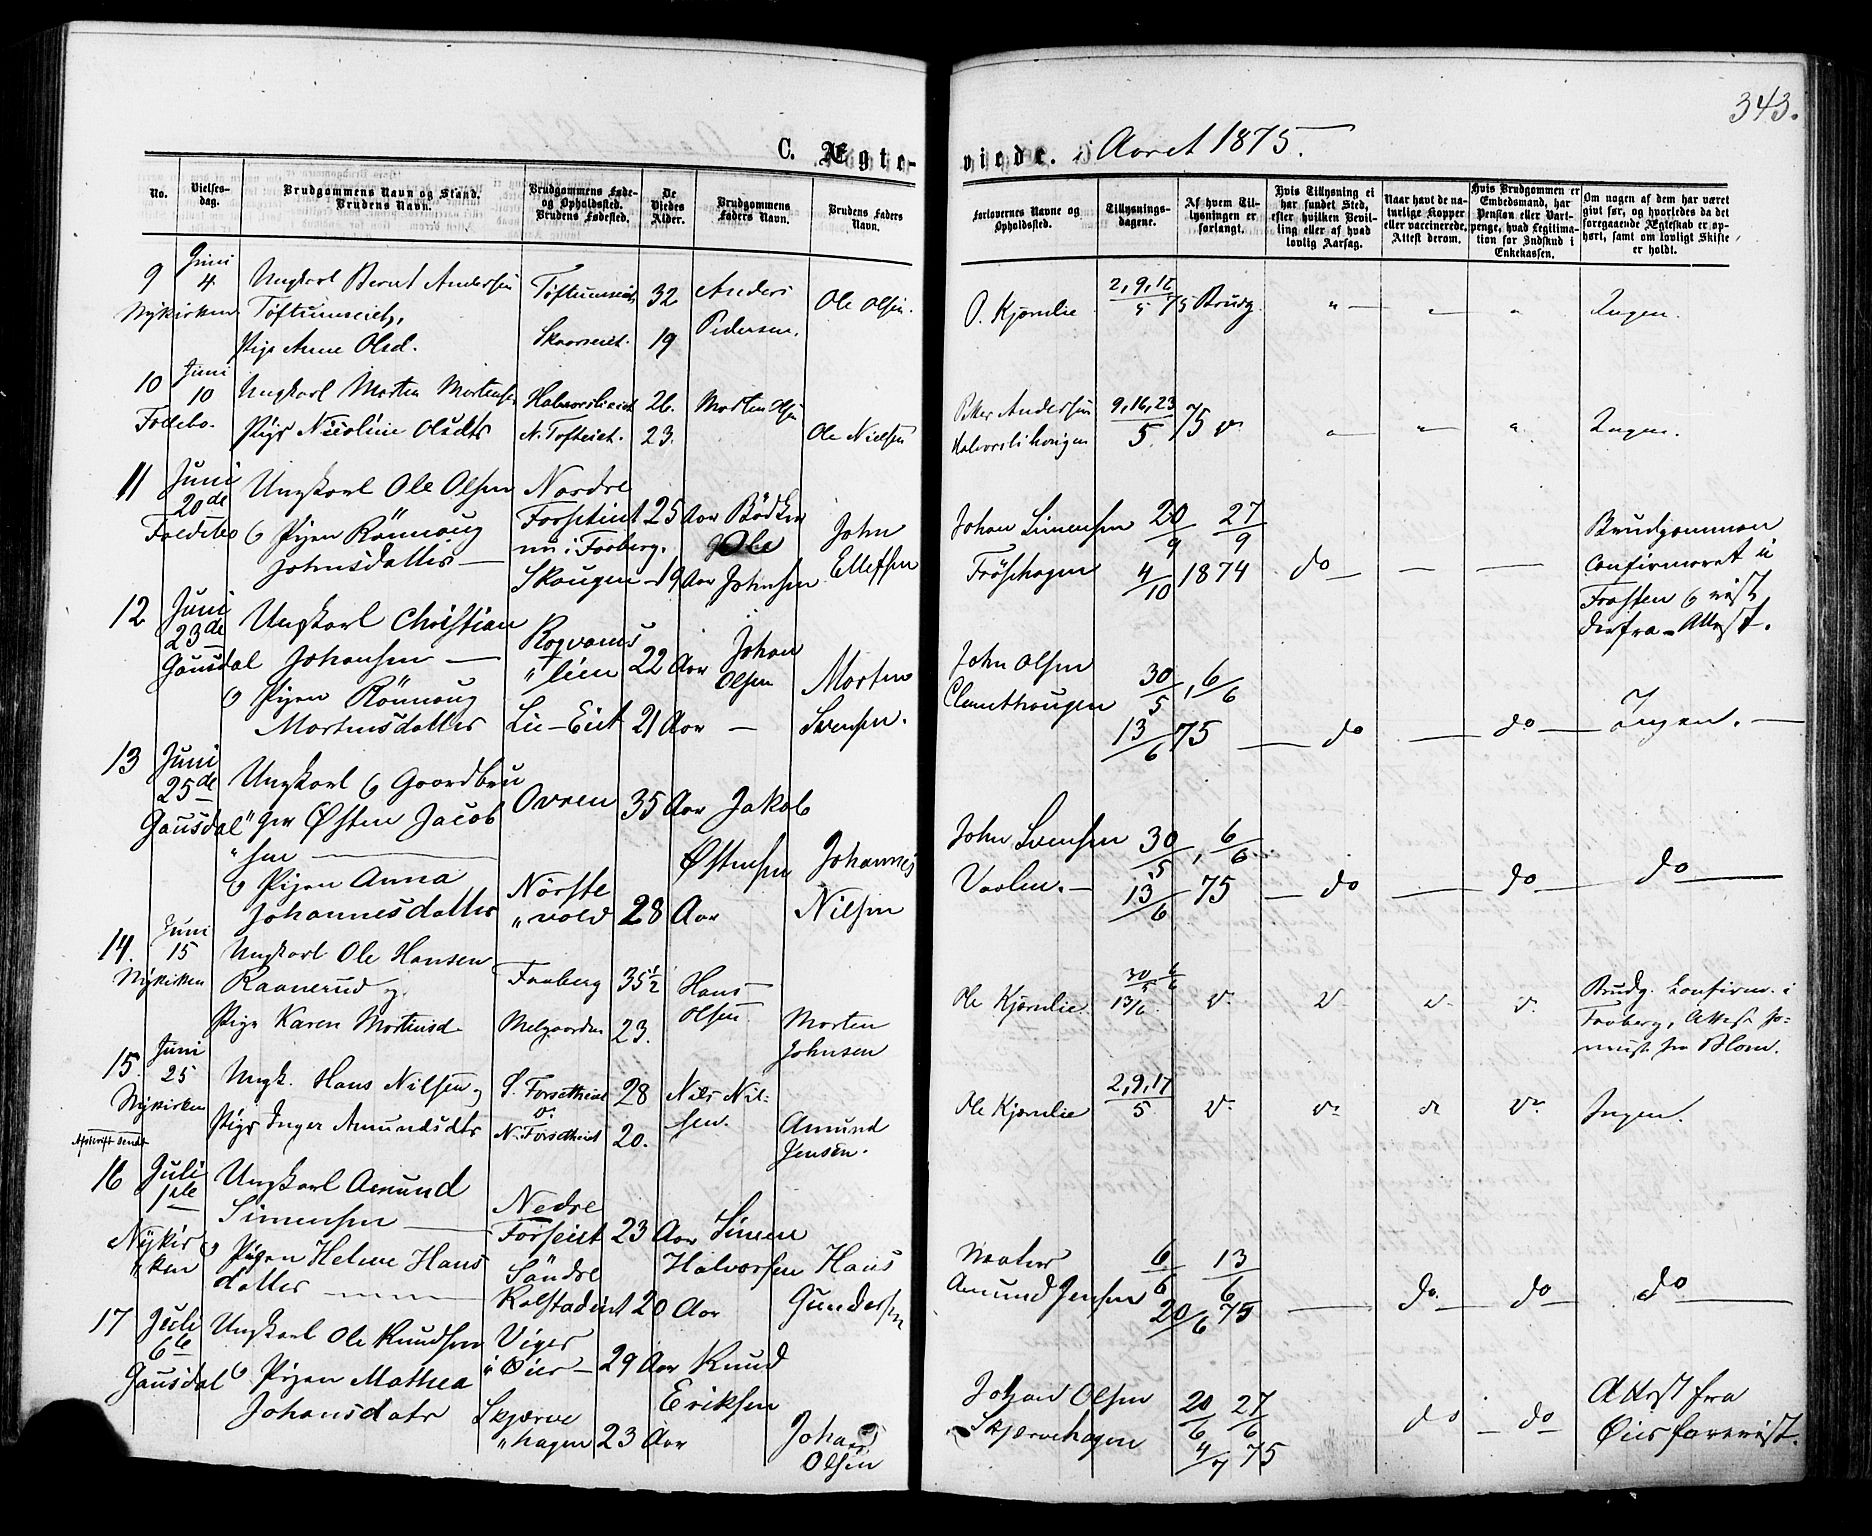 343.
C. Ægte-
viede. Aaret 1875.
No.
Vielses-
dag.
Brudgommens Navn og Stand.
Brudens Navn.
Brudgommens Føde-
og Opholdssted.
Brudens Fødested.
De
Viedes
Alder.
Brudgommens
Faders Navn.
Brudens Faders
Navn.
Forlovernes Navne og
Opholdssted.
Tillysnings-
dagene.
Af hvem Til-
lysningen er
forlangt.
Hvis Tillysning ei
har fundet Sted,
efter hvilken Bevil-
ling eller af hvad
lovlig Aarsag.
Naar havt de na-
turlige Kopper
eller vaccinerede.
Attest derom.
Hvis Brudgommen er
Embedsmand, har
Pension eller Vart-
penge, hvad Legitima-
tion for Indskud i
Enkekassen.
Om nogen af dem har været
givt før, og hvorledes da det
foregaaende Ægteskab er op-
hørt, samt om lovligt Skifte
er holdt.
9 Juni 4 Nykirken
Ungkarl Bernt Andersen
Toftumseiet,
Pige Anne Olsd.
Toftumseiet 32
Skaarseiet. 19
Anders
Pedersen.
Ole Olsen.
O. Kjørnlie
2, 9, 16
5 75 Brudg.
" — " "
Ingen.
10 Juni 10 Follebo.
Ungkarl Morten Mortensen
Pige Nicoline Olsdtr
Halvorslieiet 26.
N. Tofteiet. 23.
Morten Olsen
Ole Nielsen
Peter Andersen
Halvorslihougen
9, 16, 23
5. 75
Ingen.
11 Juni 20de Foldebo
Ungkarl Ole Olsen
Pigen Rönnoug
Johnsdatter —
Nordre
Forseteiet 25 Aar
i Faaberg.
Skougen — 19 Aar
Bödker
Ole
Johnsen
John
Ellefsen
Johan Simensen
Fröshagen
20/9 27/9
4/10 1874
do — — —
Brudgommen
Confirmeret i
attest.
12 Juni 23de Gausdal
Ungkarl Christian
Johansen —
Pigen Rönnoug
Mortensdatter
„ lien 22 Aar
Lie-Eiet 21 Aar —
Johan
Olsen
Morten
Svensen.
John Olsen
Clemethougen
30/5, 6/6
13/6 75 — do — do
Ingen. —
13 Juni 25de Gausdal
Ungkarl & Gaardbru
" ger Østen Jacob
" sen —
Pigen Anna
Johannesdatter
Ovren 35 Aar
Nörste
„ vold 28 Aar
Jakob
Østensen
Johannes
Nilsen
John Svensen
Vaalen. —
30/5, 6/6
13/6 75 — do — do —
do —
14. Juni 15 Nykirken
Ungkarl Ole Hansen
Raanerud og
Pige Karen Mortinsd.
Faaberg 35½
Melgaarden 23.
Hans
Olsen.
Morten
Johnsen
Ole Kjørnlie
30/5 6/6
13/6.
Brudg. Confirm. i
Faaberg, Attest
fra Blom.
15. Juni 25 Nykirken
Afskrift sendt
Ungk. Hans Nilsen og
Pige Inger Amundsdtr
S. Forsetheiet 28
N. Forsetheiet 20.
Nils Nil-
sen.
Amund
Jensen.
Ole Kjørnlie
2, 9, 17
5
Ingen.
16 Juli 1ste Nykir
" ken
Ungkarl Amund
Simensen —
Pigen Helene Hans
datter —
Nedre
Forseiet 23 Aar
Söndre
Kalstadeiet 20 Aar
Simen
Halvorsen
Hans
Gundersen
Amund Jensen
6/6 13/6
20/6 75 — do — do —
do —
17 Juli 6te Gausdal
Ungkarl Ole Knudsen
Pigen Mathea
Johansdatr
Viger
i Öier — 29 Aar
Skjærve
„ hagen 23 Aar
Knud
Eriksen
Johan
Olsen
Johan Olsen
Skjærvehagen
20/6 27/6
4/7 75
do — do
Attest fra
Öier forevist.